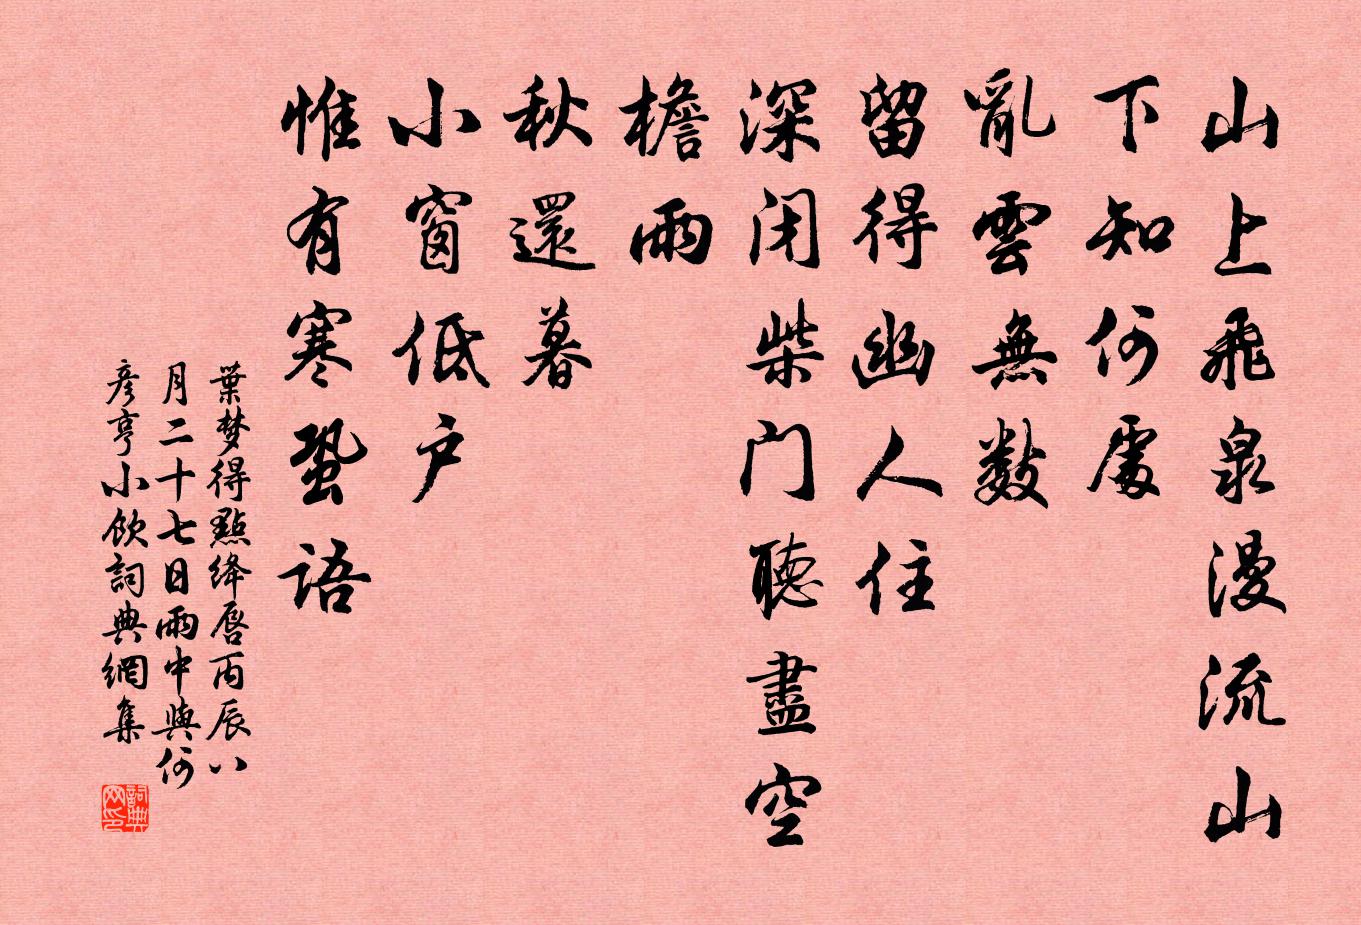 山上飛泉漫流山
下知何處
亂雲無數
留得幽人住
深闭柴门聽盡空
檐雨
秋還暮
小窗低户
惟有寒蛩语
葉梦得點绛唇丙辰八
月二十七日雨中與何
彦亨小飲詞典網集
詞典
网印